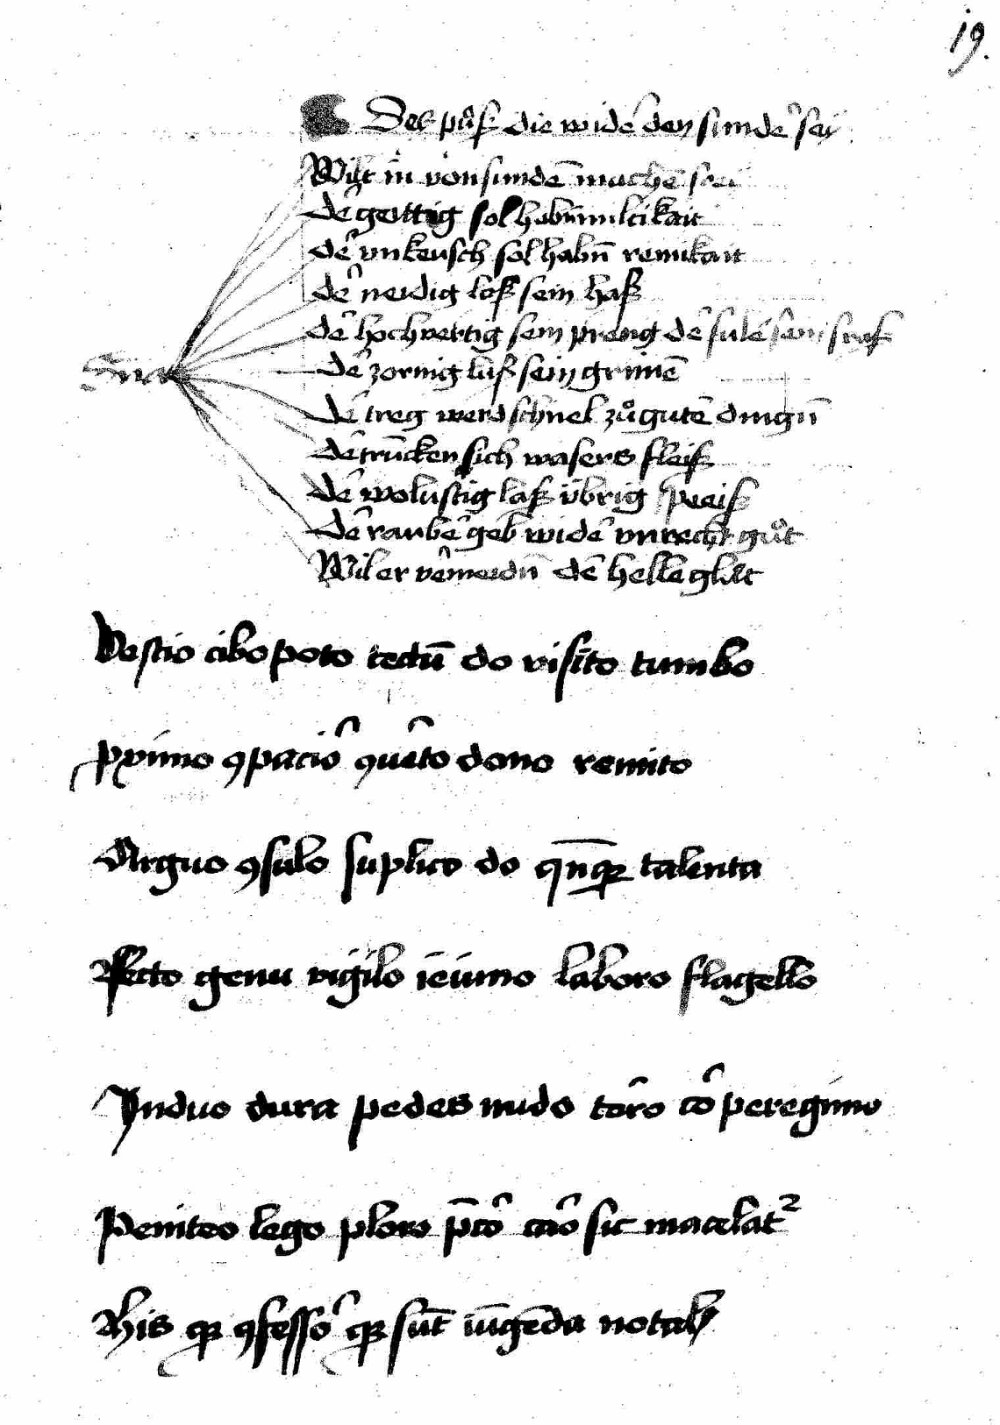 19.
Des puͦß die wideˀ den sundeˀ sey
Wilt in von sundē machē frei
deˀ geittig sol habn miltikait
deˀ vnkeusch sol habn̄ reinikait
deˀ neidig laß sein haß
deˀ hochvertig sein preng deˀ
deˀ zornig laß sein grimē
deˀ treg werd schnel zuͦ gutē dingn̄
deˀ trūcken sich wasers fleiß
deˀ wolustig laß übrig speiß
deˀ raubeˀ geb wideˀ vnrecht guͦt
Wil er vˀmeidn̄ deˀ helle gluͦt
Vestio cibo poto tectū do visito tumbo
ꝓximo ꝯpacioˀ ꝯuˀto dono remito
Arguo ꝯsulo suplico do qn̄qꝫ talenta
flecto genu vigilo ieiuno laboro flagello
Induo dura pedes nudo toˀro coˀ peregrino
Peniteo lego ploro p̄coˀ caˀo sic macelatᷣ
Hˀis qꝫ ꝯfessoˀ qꝫ sūt iūgēda notab